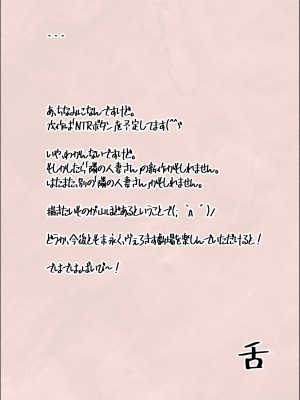 ...
あ、ちなみになんですけど。
次作は「NTRボタン」を予定してます(^^)v
いや、わかんないですけど。
もしかしたら「隣の人妻さん」の新作かもしれません。
はたまた、別の「隣の人妻さん」かもしれません。
描きたいものが山ほどあるということで(; ｀ﾊ´)/
どうか、今後とも末永く、ヴぇろきす劇場を楽しんでいただけると!
ではでは、ばいび～!
舌